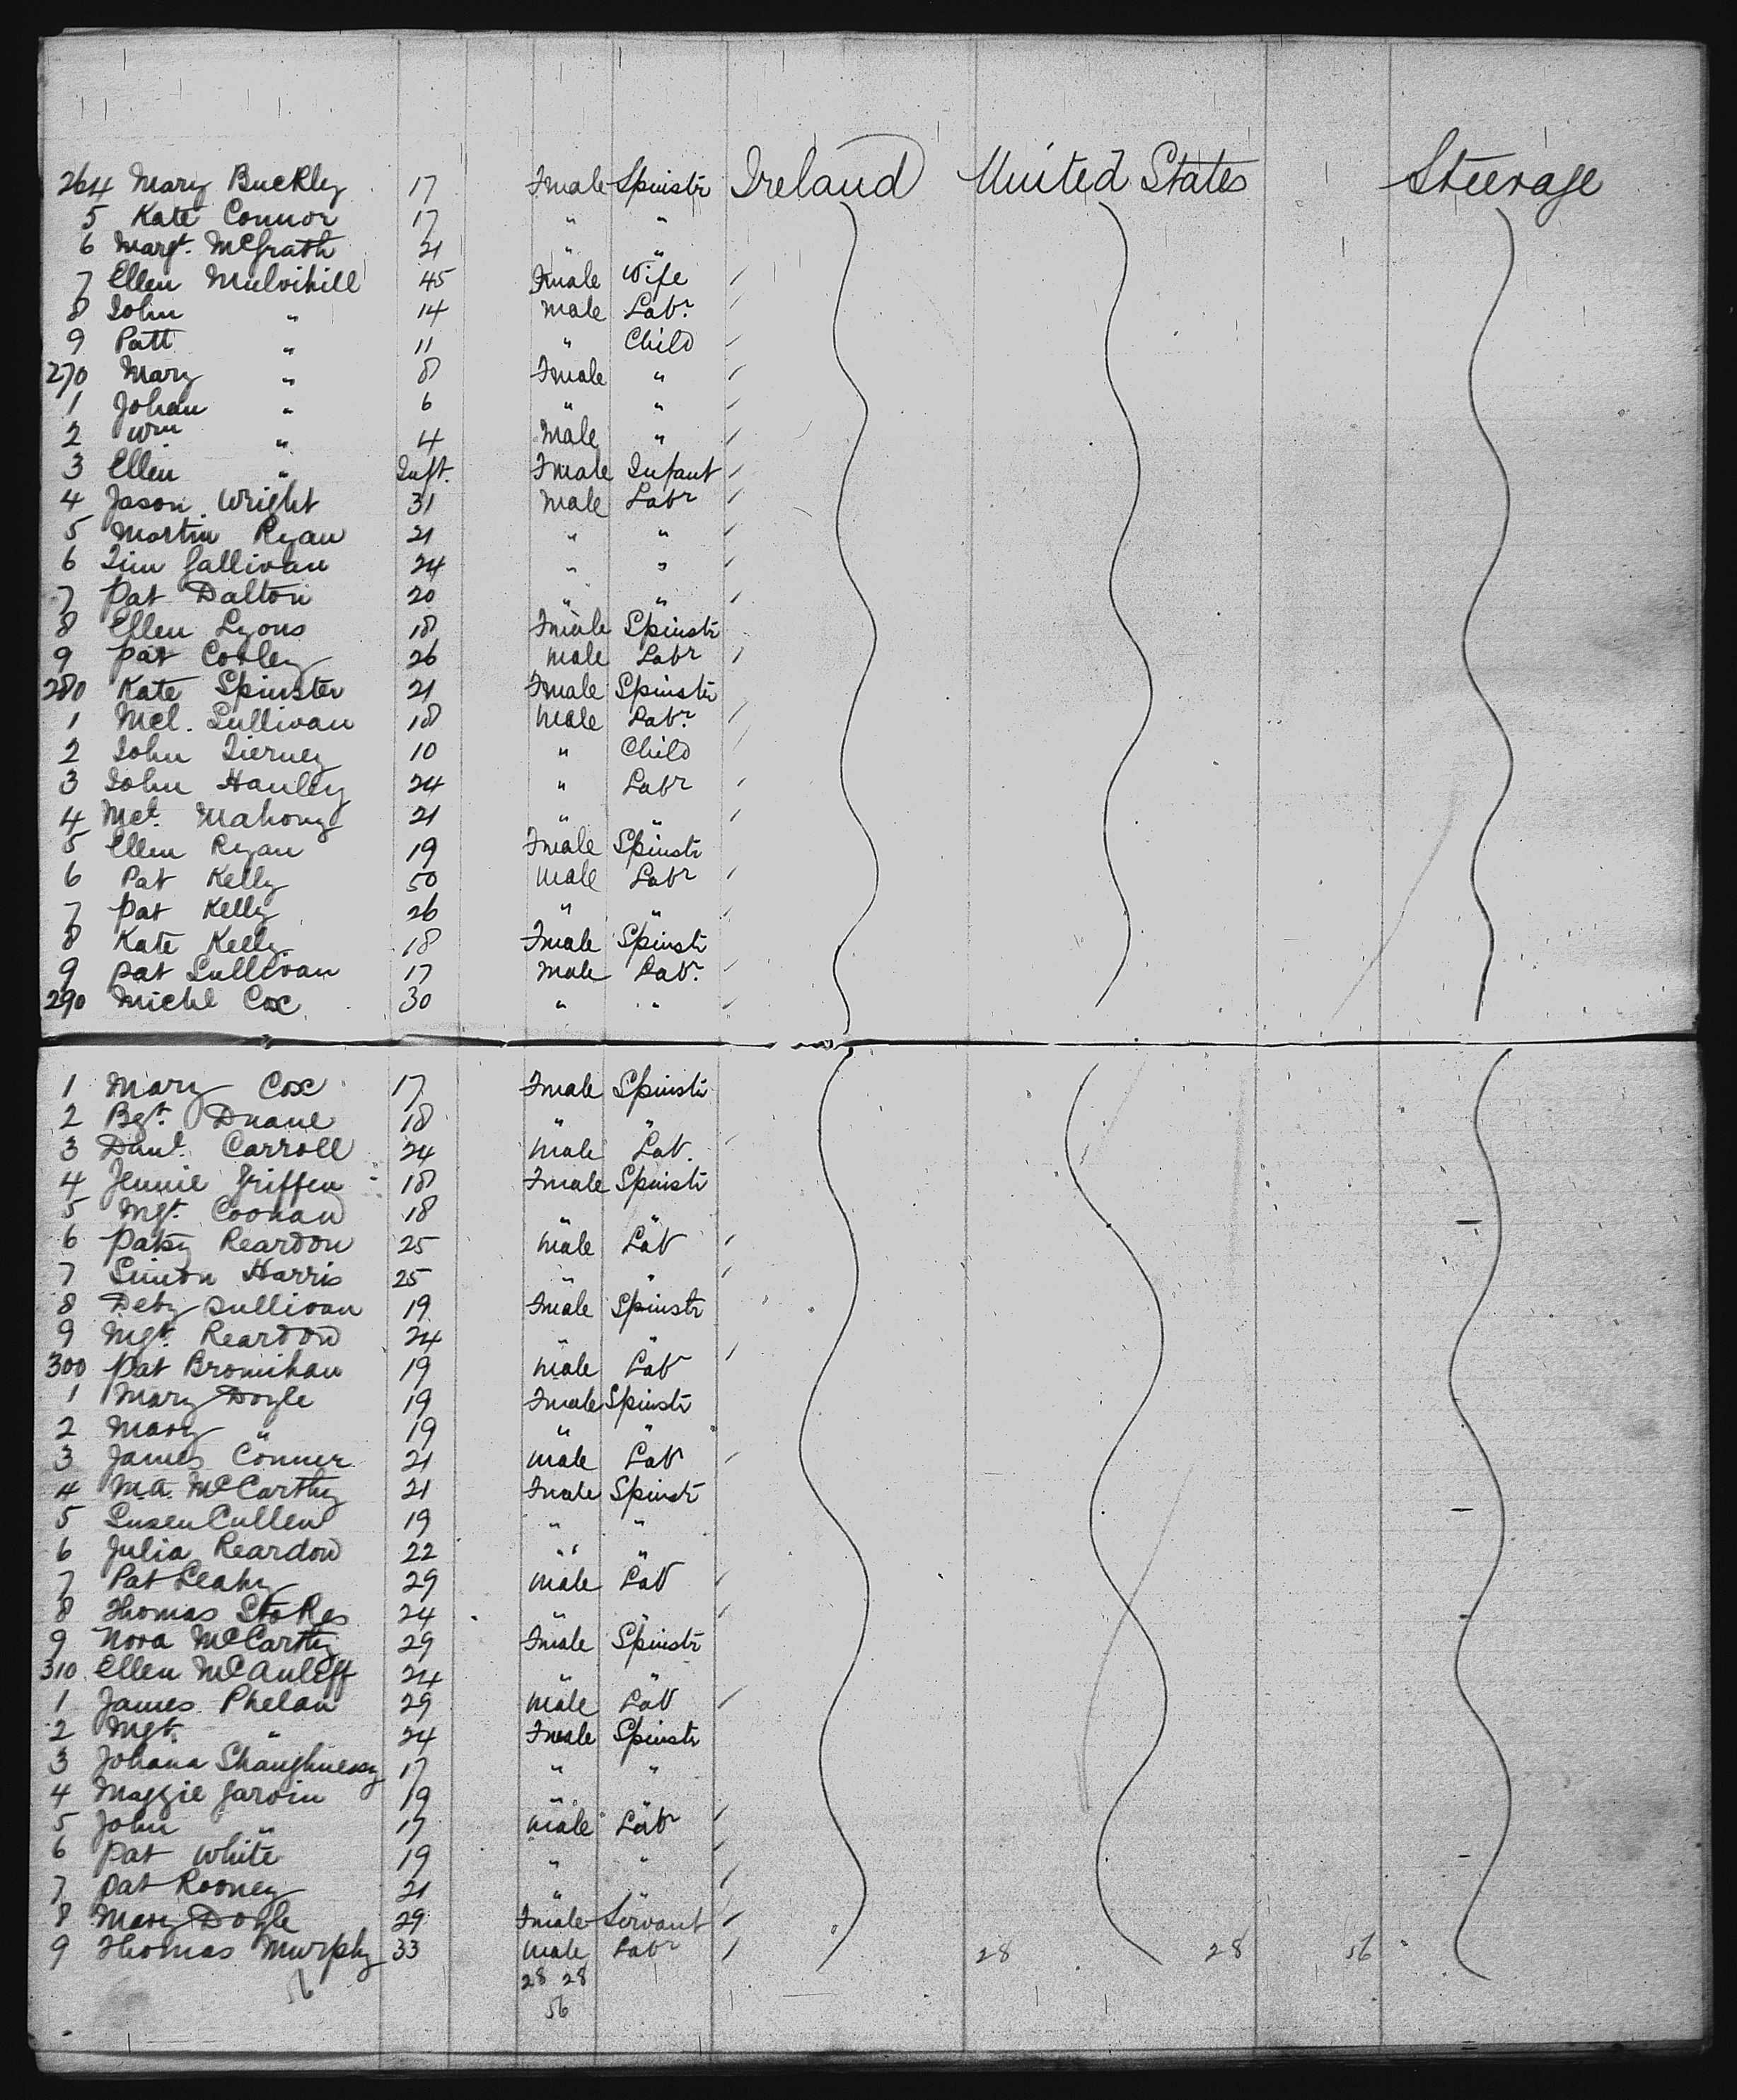 264 Mary Buckley 17 Fmale Spinstr Ireland United States Steerage
5 Kate Connor 17 " "
6 Margt. McGrath 21 " "
7 Ellen Mulvihill 45 Fmale Wife
8 John " 14 Male Labr.
9 Patt " 11 " Child
270 Mary " 8 Fmale "
1 Johan " 6 " "
2 Wm " 4 Male "
3 Ellen " Inft. Fmale Infant
4 Jason Wright 31 Male Labr
5 Martin Ryan 21 " "
6 Tim Gallivan 24 " "
7 Pat Dalton 20 " "
8 Ellen Lyons 18 Fmale Spinstr
9 Pat Corley 26 Male Labr
280 Kate Spinster 21 Fmale Spinstr
1 Mcl. Sullivan 18 Male Labr.
2 John Tierney 10 " Child
3 John Hanley 24 " Labr
4 Mcl. Mahony 21 " "
5 Ellen Ryan 19 Fmale Spinstr
6 Pat Kelly 50 Male Labr
7 Pat Kelly 26 " "
8 Kate Kelly 18 Fmale Spinstr
9 Pat Sullivan 17 Male Labr.
290 Michl Cox 30 " "
1 Mary Cox 17 Fmale Spinstr
2 Bgt. Duane 18 " "
3 Danl. Carroll 24 Male Lab.
4 Jennie Griffen 18 Fmale Spinstr
5 Mgt. Coonan 18 " "
6 Patsy Reardon 25 Male Lab
7 Simon Harris 25 " "
8 Deby Sullivan 19 Fmale Spinstr
9 Mgt. Reardon 24 " "
300 Pat Bromihan 19 Male Lab
1 Mary Doyle 19 Fmale Spinstr
2 Mary " 19 " "
3 James Conner 21 Male Lab
4 M.A. McCarthy 21 Fmale Spinstr
5 Susen Cullen 19 " "
6 Julia Reardon 22 " "
7 Pat Leahy 29 Male Lab
8 Thomas Stokes 24 " "
9 Nora McCarthy 29 Fmale Spinstr
310 Ellen McAuleff 24 " "
1 James Phelan 29 Male Lab
2 Mgt. " 24 Fmale Spinstr
3 Johana Shaughnessy 17 " "
4 Maggie Garvin 19 " "
5 John " 17 Male Labr
6 Pat White 19 " "
7 Pat Rooney 21 " "
8 Mary Doyle 29 Fmale Servant
9 Thomas Murphy 33 Male Labr 28 28 56
56 28 28
56